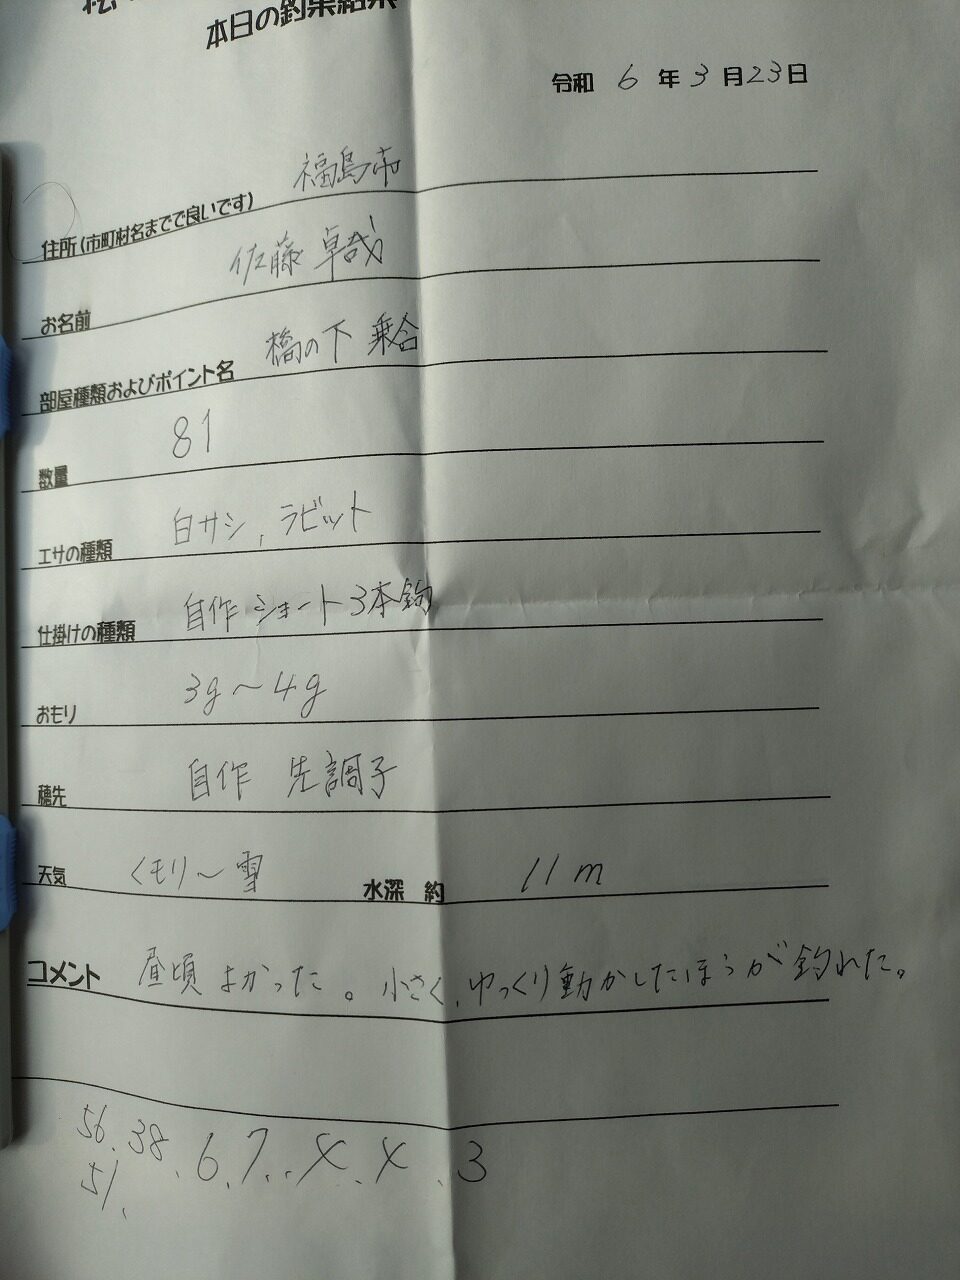 本日の釣果結果
令和 6 年 3 月 23 日
住所(市町村名までで良いです) 福島市
お名前 佐藤 卓哉
部屋種類およびポイント名 橋の下 乗合
数量 81
エサの種類 白サシ, ラビット
仕掛けの種類 自作 ショート 3本鈎
おもり 3g〜4g
穂先 自作 先調子
天気 くモリ〜雪 水深 約 11m
コメント 昼頃 よかった。小さく、ゆっくり動かしたほうが釣れた。
56. 38. 6. 7. . 3
51.